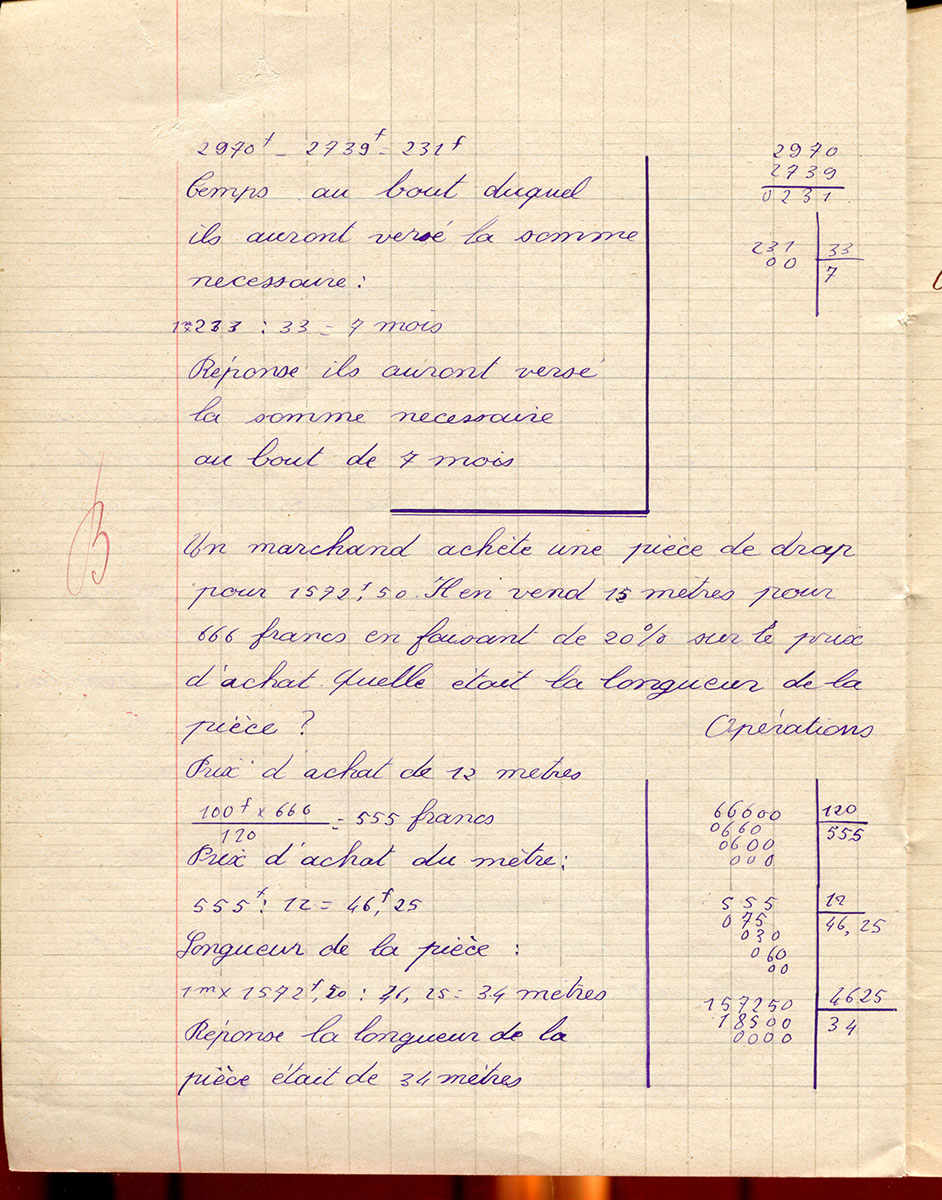 2970f - 2739f = 231f
Temps au bout duquel
ils auront versé la somme
necessaire :
: 33 = 7 mois
Réponse ils auront versé
la somme necessaire
au bout de 7 mois
2970
2739
0231
231 33
00 7
B
Un marchand achète une pièce de drap
pour 1572f,50. Il en vend mètres pour
666 francs en faisant de 20% sur le prix
d'achat. Quelle était la longueur de la
pièce ?
Opérations
Prix d'achat de 12 metres
100f x 666
120
= 555 francs
Prix d'achat du mètre :
555f : 12 = 46f,25
Longueur de la pièce :
1m x 1572f,50 : 46,25 = 34 metres
Réponse la longueur de la
pièce était de 34 mètres
66600 120
0660 555
0600
000
555 12
075 46,25
030
060
00
157250 4625
18500 34
0000